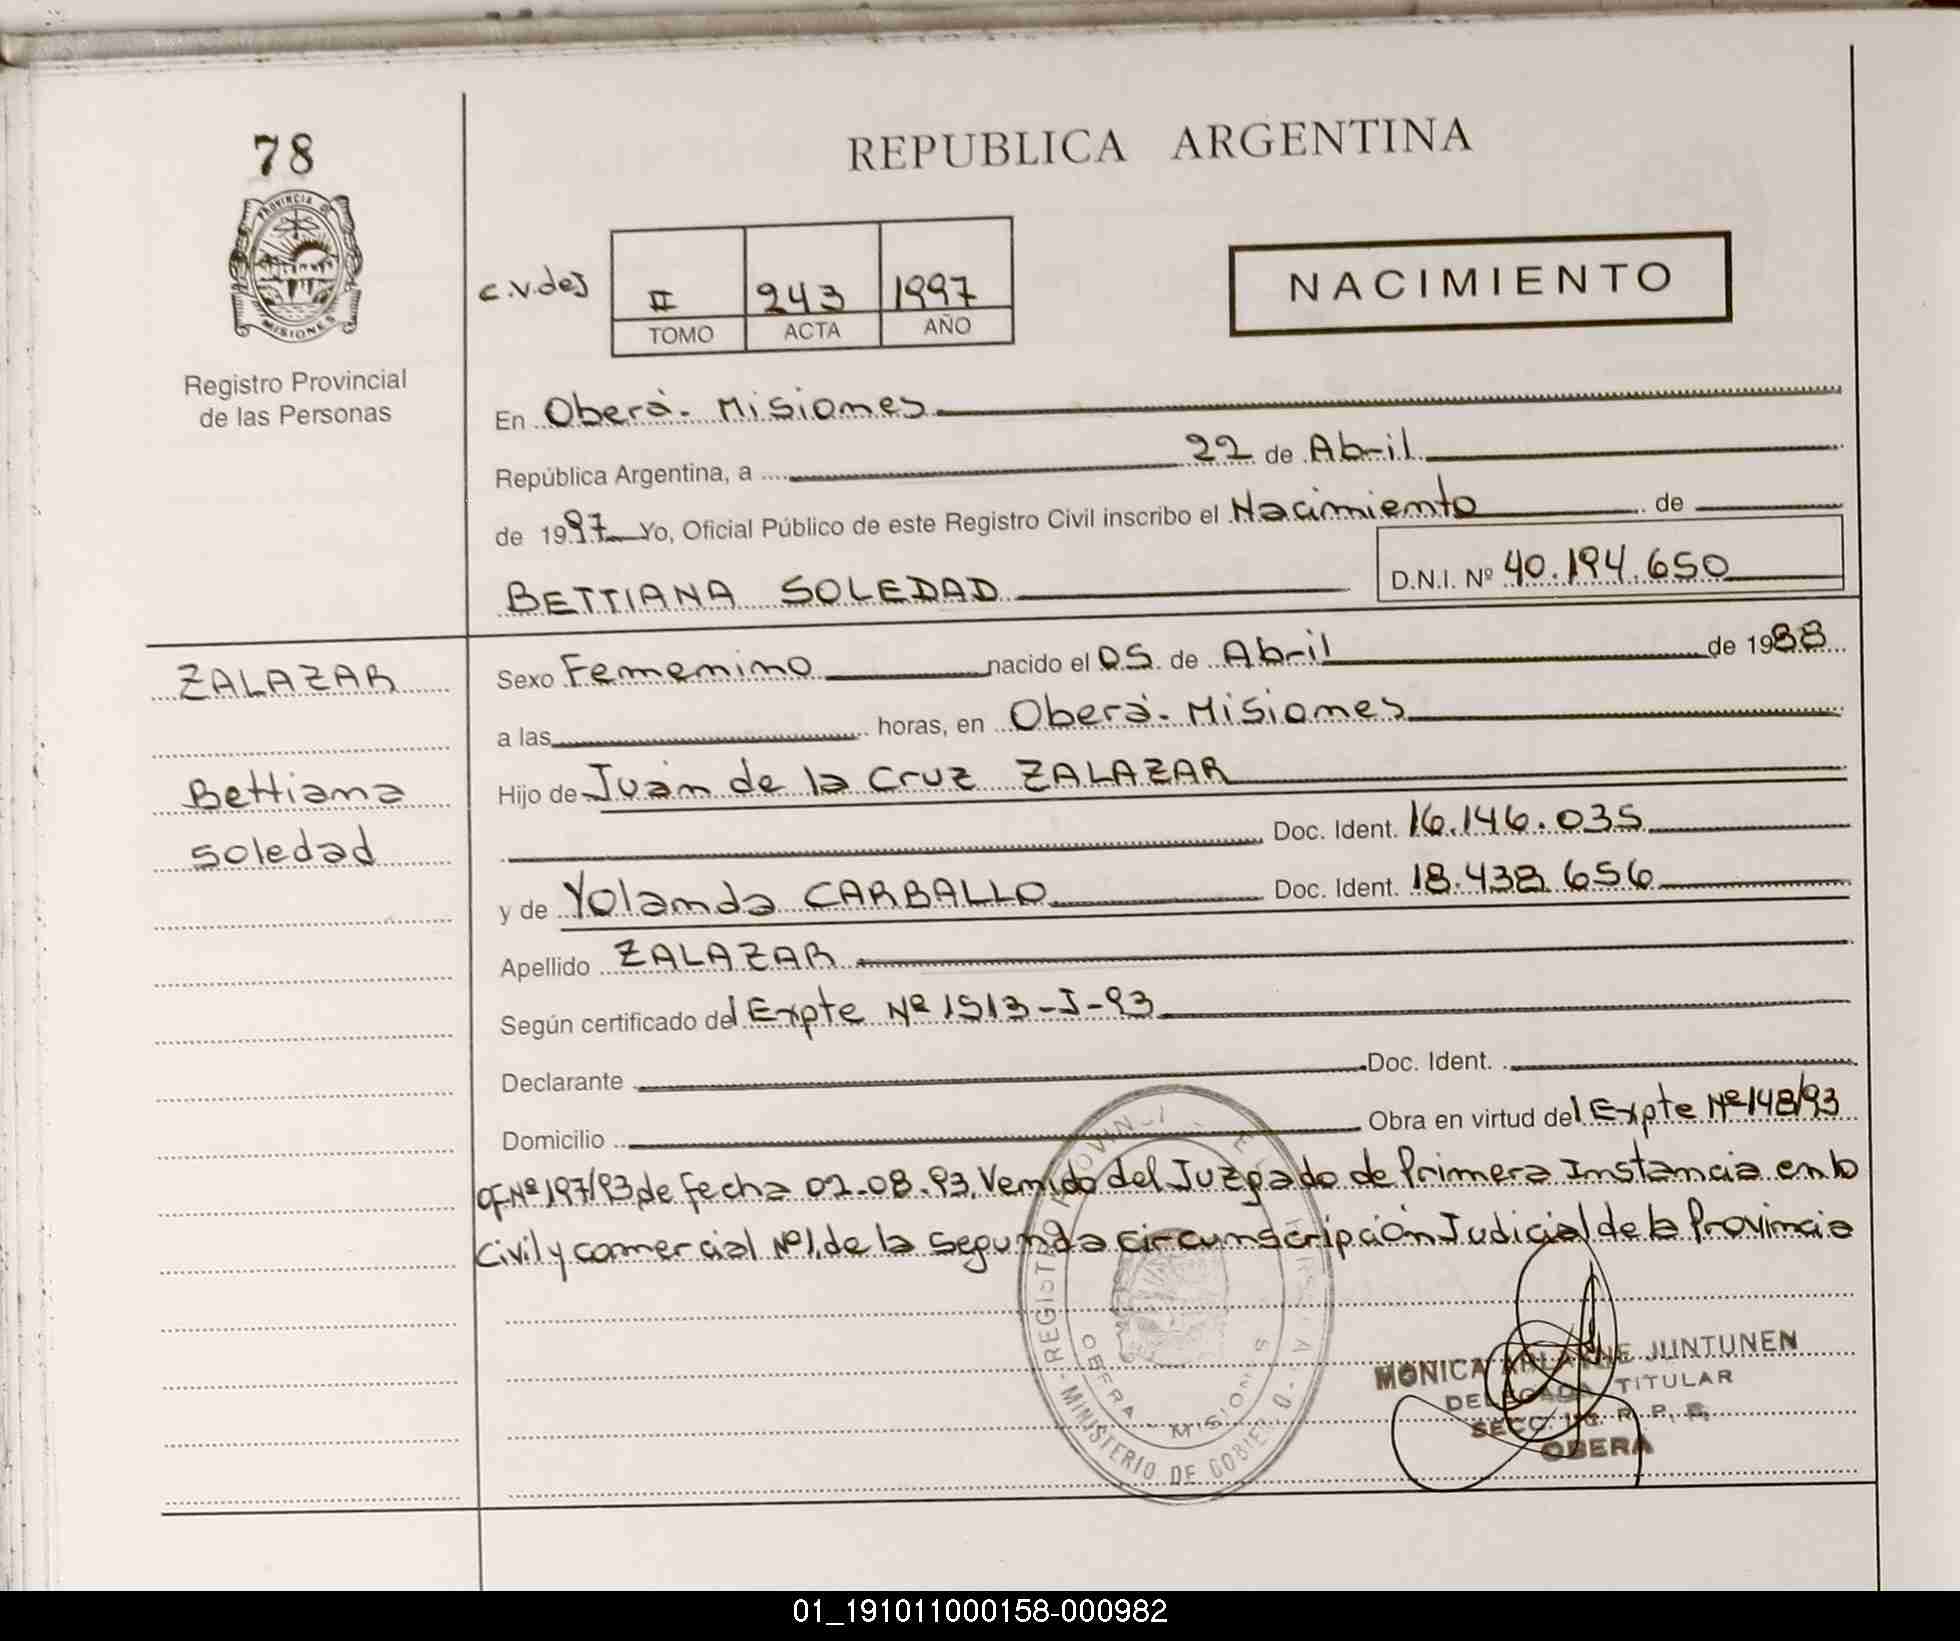 78
PROVINCIA DE
MISIONES
Registro Provincial
de las Personas
REPUBLICA ARGENTINA
C.V.deJ
II 243 1997
TOMO ACTA AÑO
NACIMIENTO
En Oberá. Misiones
República Argentina, a 22 de Abril
de 1997 Yo, Oficial Público de este Registro Civil inscribo el Nacimiento de
BETTIANA SOLEDAD D.N.I. Nº 40.194.650
ZALAZAR
Bettiana
Soledad
Sexo Femenino nacido el 05 de Abril de 1988
a las horas, en Oberá. Misiones
Hijo de Juan de la Cruz ZALAZAR
Doc. Ident. 16.146.035
y de Yolanda CARBALLO Doc. Ident. 18.438.656
Apellido ZALAZAR
Según certificado del Expte Nº 1513-J-93
Declarante Doc. Ident.
Domicilio Obra en virtud del Expte Nº148/93
of Nº197/93, de fecha 02.08.93, Venido del Juzgado de Primera Instancia en lo
Civil y comercial Nº1, de la Segunda circunscripción Judicial de la Provincia
REGISTRO
OBERA - MISIONES
MINISTERIO DE GOBIERNO
MONICA JUNTUNEN
DELEGADA TITULAR
SECC. R. P.
OBERA
01_191011000158-000982